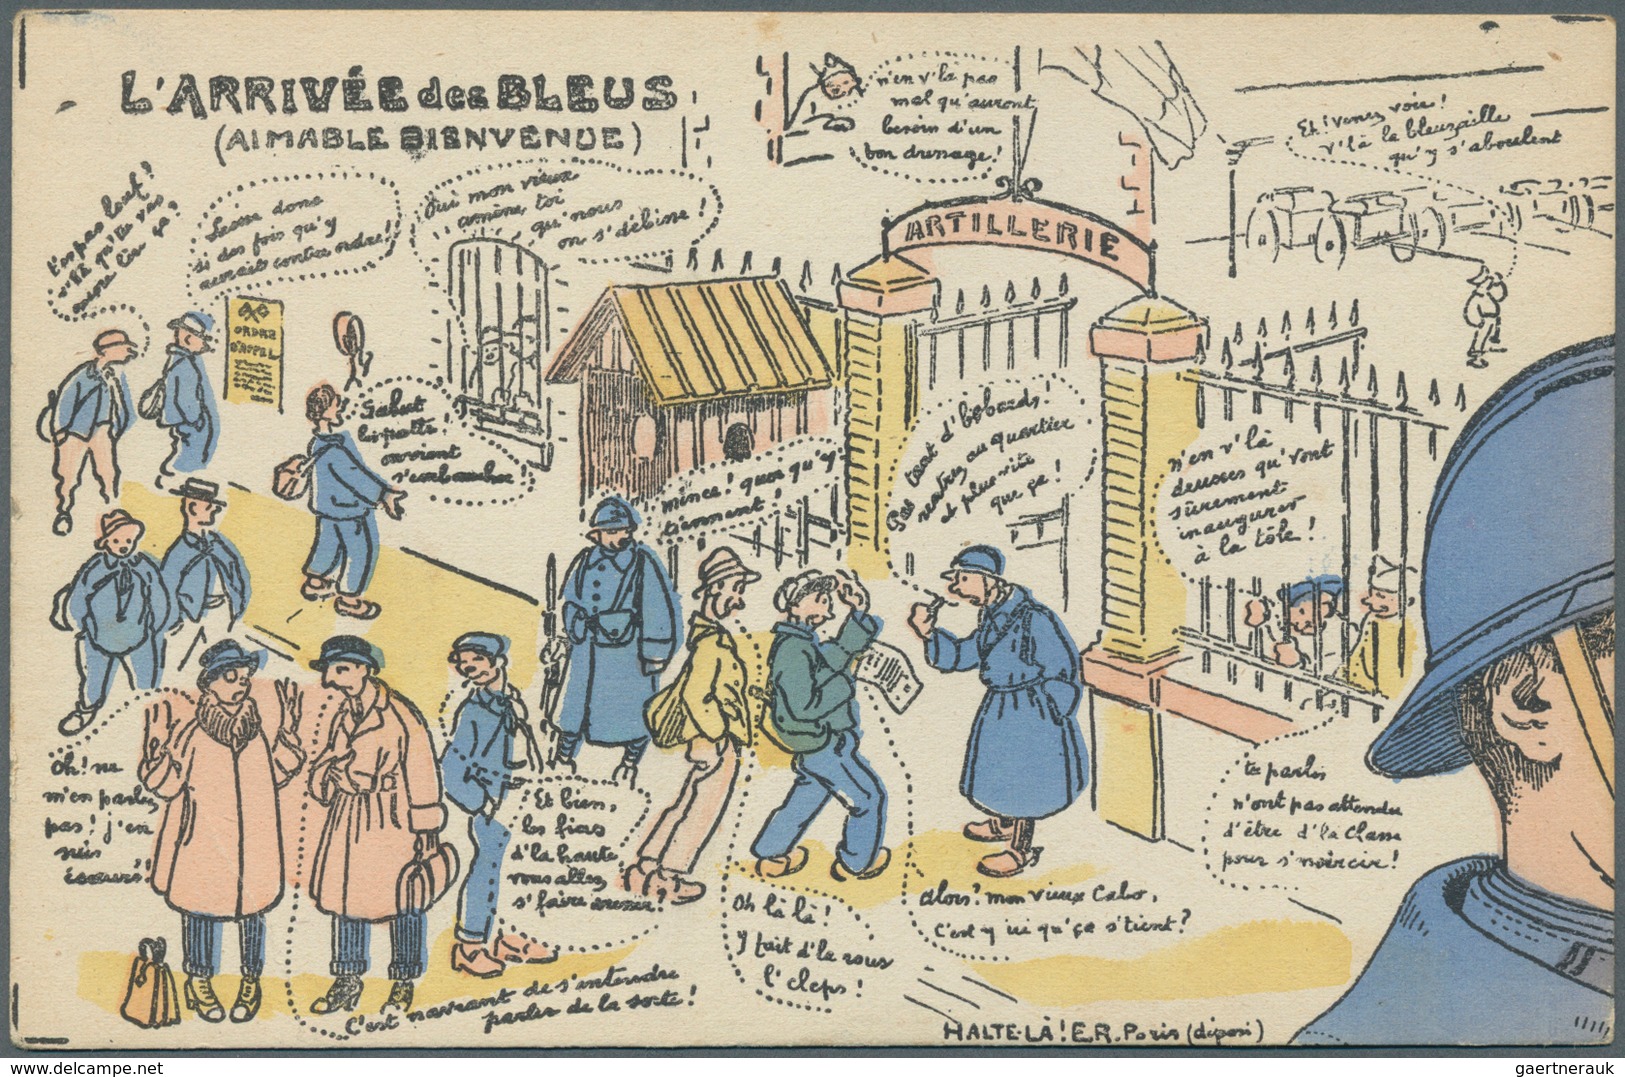 L'ARRIVÉE des BLEUS
(AIMABLE BIENVENUE)
n'en v'là pas
mal qu'auront
besoin d'un
bon dressage!
Eh! venez voir!
v'là la bleusaille
qu'y s'aboulent
T'en pas
v'là qu'tu vas
encore
donc
si des fois qu'y
aurait contre ordre!
Oui mon vieux
amène, toi
qu'nous
on s'débine!
ARTILLERIE
ORDRE
D'APPEL
Salut
les potes!
on vient
s'embaucher!
mince! quoi qu'y
tiennent!
Pas tant d'bobards!
rentrez au quartier
et plus vite
que ça!
n'en v'là
deusses qu'vont
sûrement
inaugurer
à la tôle!
Oh! ne
m'en parlez
pas! j'en
suis
écœuré!
Et bien,
les fieas
d'la haute
vous allez
s'faire
C'est navrant de s'entendre
parler de la sorte!
Oh là là!
Y fait d'la rous
l'cleps!
Alors? mon vieux Cabo,
C'est y ici qu'ça s'tient?
tu parles
n'ont pas attendu
d'être d'la Classe
pour s'noircir!
HALTE-LÀ! E.R. Paris (déposé)
gaertnerauk